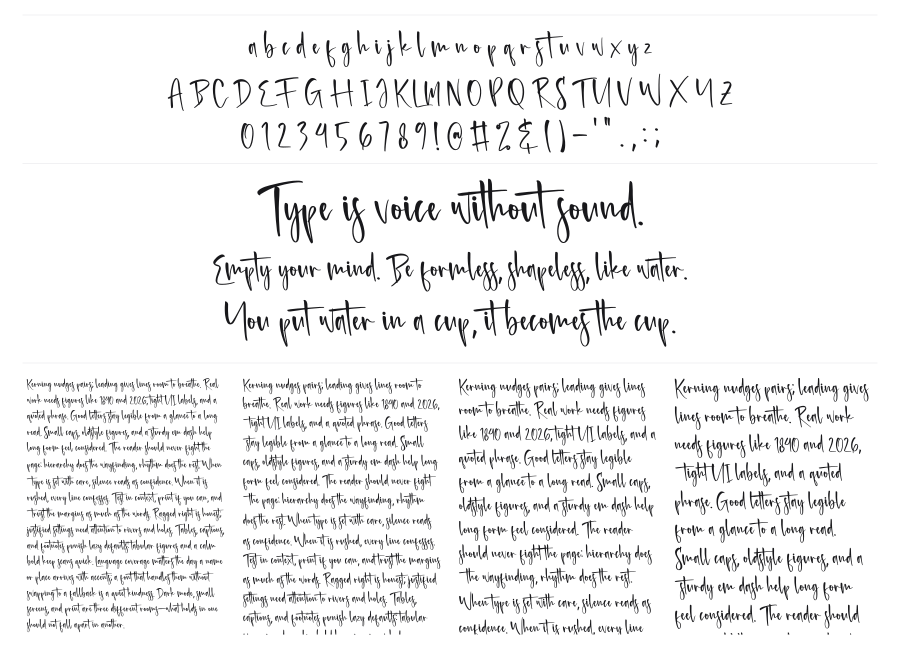 a b c d e f g h i j k l m n o p q r s t u v w x y z
A B C D E F G H I J K L M N O P Q R S T U V W X Y Z
0 1 2 3 4 5 6 7 8 9 ! @ # ? & ( ) - ' " . , : ;
Type is voice without sound.
Empty your mind. Be formless, shapeless, like water.
You put water in a cup, it becomes the cup.
Kerning nudges pairs; leading gives lines room to breathe. Real
work needs figures like 1890 and 2026, tight UI labels, and a
quoted phrase. Good letters stay legible from a glance to a long
read. Small caps, oldstyle figures, and a sturdy em dash help
long form feel considered. The reader should never fight the
page: hierarchy does the wayfinding, rhythm does the rest. When
type is set with care, silence reads as confidence. When it is
rushed, every line confesses. Test in context, print if you can, and
trust the margins as much as the words. Ragged right is honest;
justified settings need attention to rivers and holes. Tables, captions,
and footnotes punish lazy defaults; tabular figures and a calm
bold keep scans quick. Language coverage matters the day a name
or place arrives with accents; a font that handles them without
swapping to a fallback is a quiet kindness. Dark mode, small
screens, and print are three different rooms—what holds in one
should not fall apart in another.
Kerning nudges pairs; leading gives lines room to
breathe. Real work needs figures like 1890 and 2026,
tight UI labels, and a quoted phrase. Good letters
stay legible from a glance to a long read. Small
caps, oldstyle figures, and a sturdy em dash help long
form feel considered. The reader should never fight
the page: hierarchy does the wayfinding, rhythm
does the rest. When type is set with care, silence reads
as confidence. When it is rushed, every line confesses.
Test in context, print if you can, and trust the margins
as much as the words. Ragged right is honest; justified
settings need attention to rivers and holes. Tables,
captions, and footnotes punish lazy defaults; tabular
Kerning nudges pairs; leading gives lines
room to breathe. Real work needs figures
like 1890 and 2026, tight UI labels, and a
quoted phrase. Good letters stay legible
from a glance to a long read. Small caps,
oldstyle figures, and a sturdy em dash help
long form feel considered. The reader
should never fight the page: hierarchy does
the wayfinding, rhythm does the rest.
When type is set with care, silence reads as
confidence. When it is rushed, every line
Kerning nudges pairs; leading gives
lines room to breathe. Real work
needs figures like 1890 and 2026,
tight UI labels, and a quoted
phrase. Good letters stay legible
from a glance to a long read.
Small caps, oldstyle figures, and a
sturdy em dash help long form
feel considered. The reader should